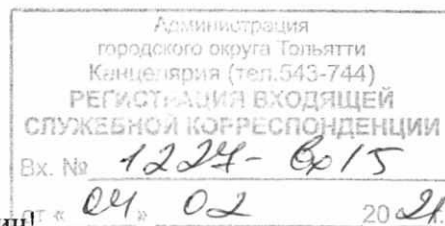 Администрация
городского округа Тольятти
Канцелярия (тел.543-744)
РЕГИСТРАЦИЯ ВХОДЯЩЕЙ
СЛУЖЕБНОЙ КОРРЕСПОНДЕНЦИИ
Вх. № 1227-вх/5
от « 04 » 02 20 21.